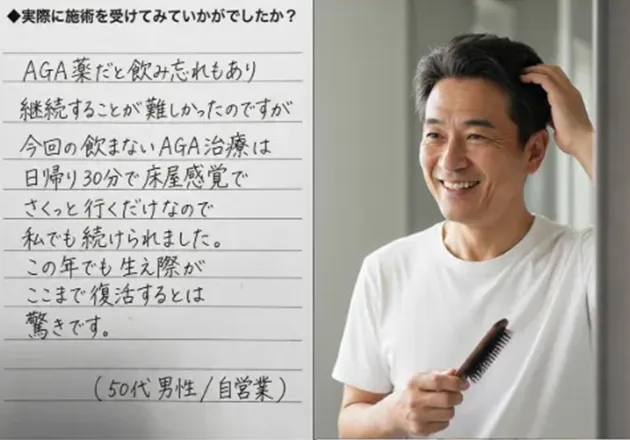 ◆実際に施術を受けてみていかがでしたか？
AGA薬だと飲み忘れもあり
継続することが難しかったのですが
今回の飲まないAGA治療は
日帰り30分で床屋感覚で
さくっと行くだけなので
私でも続けられました。
この年でも生え際が
ここまで復活するとは
驚きです。
(50代男性/自営業)